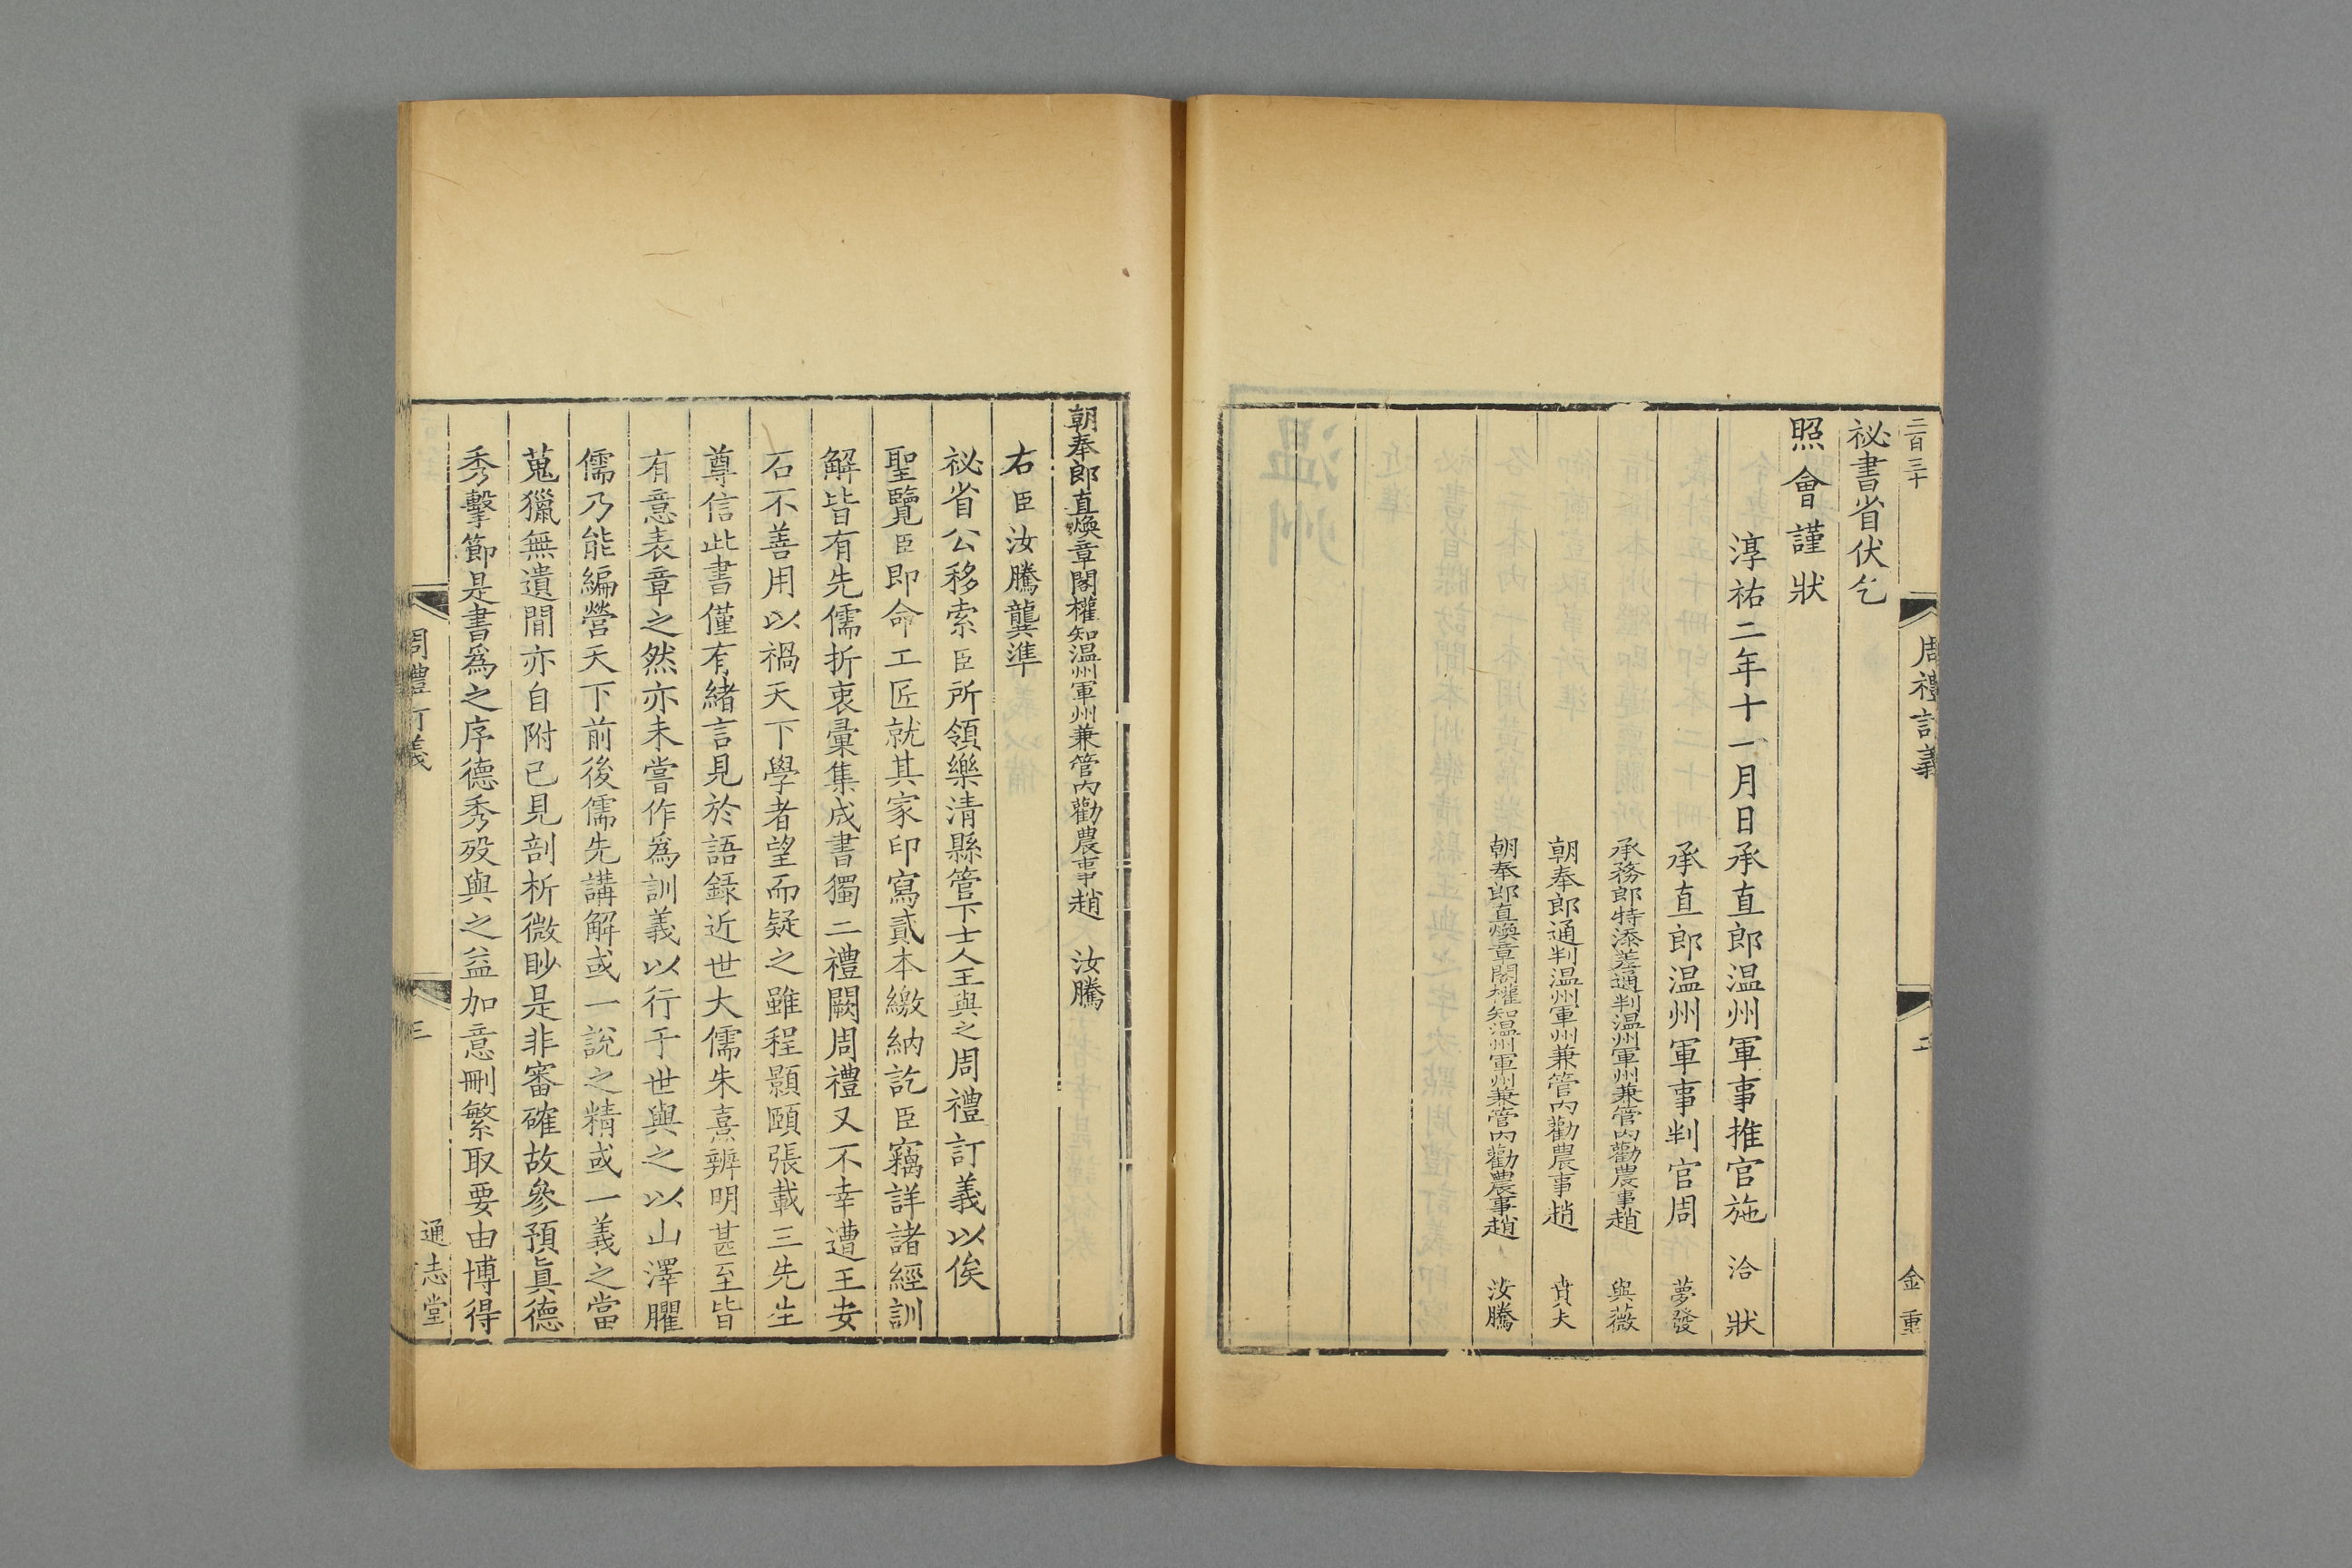 二百三十
周禮訂義
二
金重
祕書省伏乞
照會謹狀
淳祐二年十一月日承直郎温州軍事推官施 洽 狀
承直郎温州軍事判官周 夢發
承務郎特添差通判温州軍州兼管內勸農事趙 與薇
朝奉郎通判温州軍州兼管內勸農事趙 賁夫
朝奉郎直煥章閣權知温州軍州兼管內勸農事趙 汝騰
朝奉郎直煥章閣權知温州軍州兼管內勸農事趙 汝騰
右臣汝騰龔準
祕省公移索臣所領樂清縣管下士人王與之周禮訂義以俟
聖覽臣即命工匠就其家印寫貳本繳納訖臣竊詳諸經訓
解皆有先儒折衷彙集成書獨二禮闕周禮又不幸遭王安
石不善用以禍天下學者望而疑之雖程顥頤張載三先生
尊信此書僅有緒言見於語録近世大儒朱熹辨明甚至皆
有意表章之然亦未嘗作爲訓義以行于世與之以山澤臞
儒乃能編營天下前後儒先講解或一說之精或一義之當
蒐獵無遺間亦自附己見剖析微眇是非審確故參預眞德
秀擊節是書爲之序德秀殁與之益加意刪繁取要由博得
周禮訂義
三
通志堂